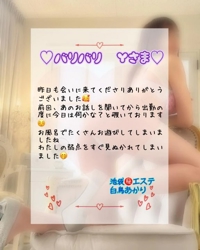 ♡バリバリ　Yさま♡
昨日も会いに来てくださりありがとう
ございました🥰
前回、あのお話しを聞いてから出勤の
度に今日は何かな？と覗いております
😚
お風呂でたくさんお遊びしてしまいまし
たね
わたしの弱点をすぐ見ぬかれてしまい
ました😚
池袋㊙エステ
白鳥あかり